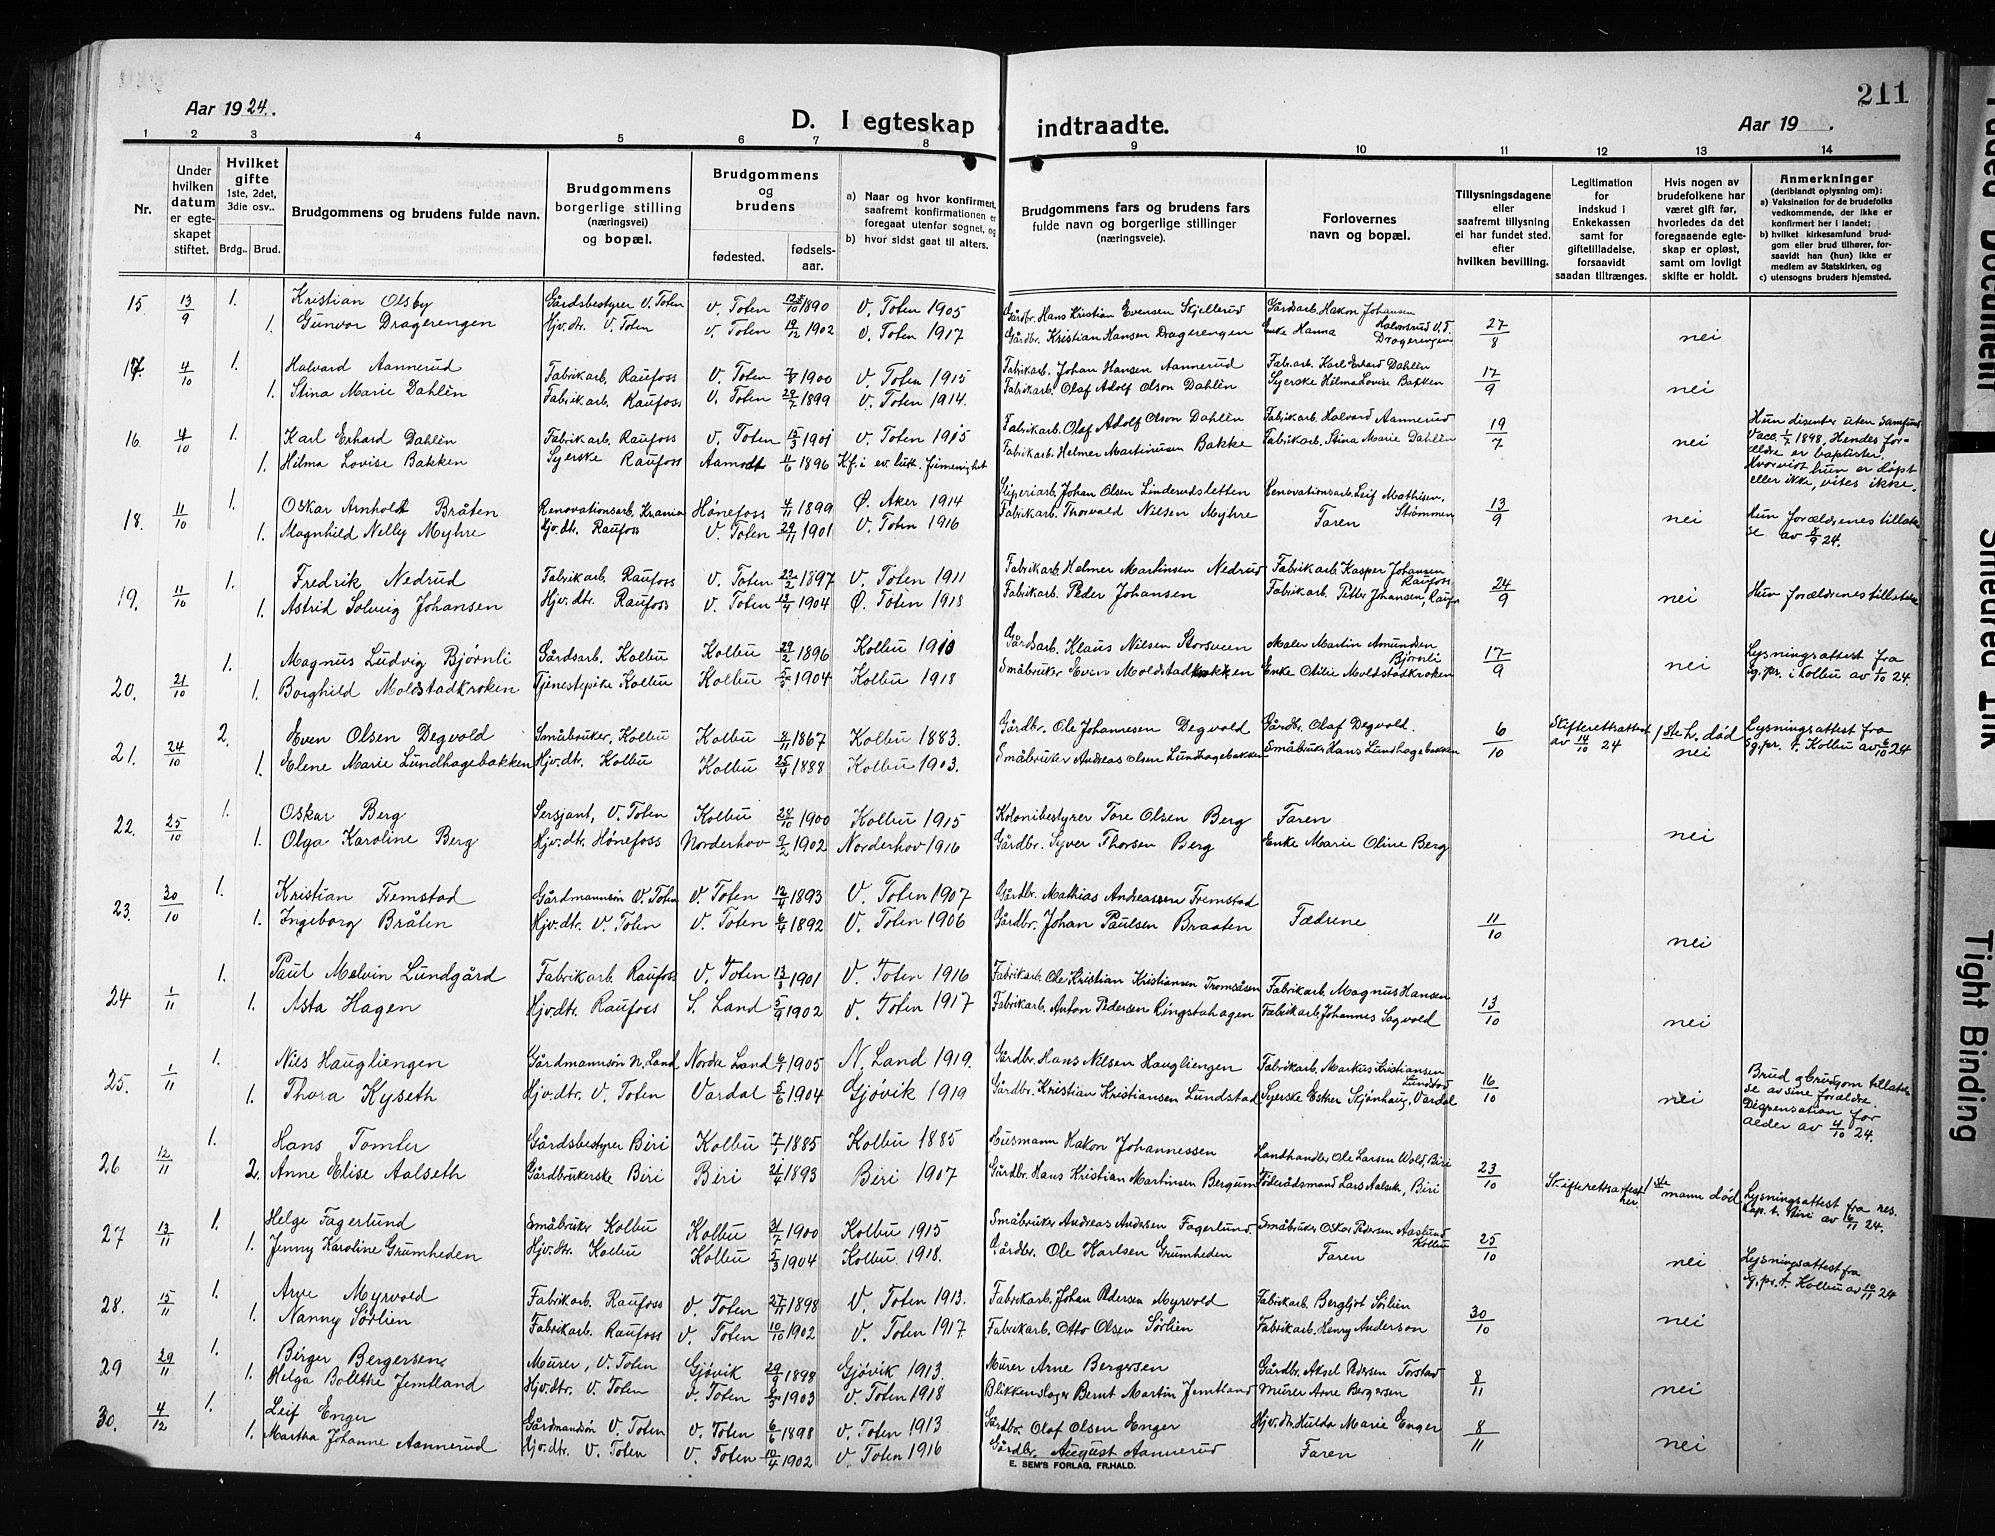 211
Aar 1924.
D. I egteskap indtraadte.
Aar 19    .
1 2 3 4 5 6 7 8 9 10 11 12 13 14
Nr.
Under hvilken datum er egteskapet stiftet.
Hvilket gifte 1ste, 2det, 3die osv..
Brdg.. Brud.
Brudgommens og brudens fulde navn.
Brudgommens borgerlige stilling (næringsvei) og bopæl.
Brudgommens og brudens
fødested. fødselsaar.
a) Naar og hvor konfirmert, saafremt konfirmationen er foregaat utenfor sognet, og
b) hvor sidst gaat til alters.
Brudgommens fars og brudens fars fulde navn og borgerlige stillinger (næringsveie).
Forlovernes navn og bopæl.
Tillysningsdagene eller saafremt tillysning ei har fundet sted. efter hvilken bevilling.
Legitimation for indskud i Enkekassen samt for giftetilladelse, forsaavidt saadan tiltrænges.
Hvis nogen av brudefolkene har været gift før, hvorledes da det foregaaende egteskap er opløst, samt om lovligt skifte er holdt.
Anmerkninger (deriblandt oplysning om):
a) Vaksination for de brudefolks vedkommende, der ikke er konfirmert her i landet;
b) hvilket kirkesamfund brudgom eller brud tilhører, forsaavidt han (hun) ikke er medlem av Statskirken, og
c) utensogns bruders hjemsted.
15 13/9 1. Kristian Olsby Gårdsbestyrer V. Toten V. Toten 1890 V. Toten 1905 Gårdbr. Hans Kristian Evensen Skjellerud Gårdsarb. Hakon Johansen Halmsrud V.T. 27/8 nei
1. Gunvor Dragerengen Hjv.dtr. V. Toten V. Toten 19/12 1902 V. Toten 1917 Gårdbr. Kristian Hansen Dragerengen Enke Hanna Dragerengen
17. 4/10 1. Halvard Aannerud Fabrikarb. Raufoss V. Toten 1900 V. Toten 1915 Fabrikarb. Johan Hansen Aannerud Fabr.arb. Karl Erhard Dahlèn 17/9 nei
1. Stina Marie Dahlèn Fabrikarb. Raufoss V. Toten 1899 V. Toten 1914. Fabrikarb. Olaf Adolf Olson Dahlèn Syerske Hilma Lovise Bakken
16. 4/10 1. Karl Erhard Dahlèn Fabrikarb. Raufoss V. Toten 15/3 1901 V. Toten 1915 Fabrikarb. Olaf Adolf Olson Dahlèn Fabrikarb. Halvard Aannerud 19/7 nei Hun disenter uten samfund
1. Hilma Lovise Bakken Syerske Raufoss Aamodt 4/6 1896 Kf. i ev. luth. frimenighet Fabrikarb. Helmer Martinusen Bakke Fabrikarb. Stina Marie Dahlèn Vacc. 1898, Hendes forældre er baptister. Hvorvidt hun er døpt eller ikke, vites ikke.
18. 11/10 1. Oskar Arnholt Bråten Renovationsarb. Krania Hønefoss 4/11 1899 Ø. Aker 1914 Sliperiarb. Johan Olsen Linderudsletten Renovationsarb. Leif Mathisen, Strømmen 13/9 nei Hun forældrenes tillatelse av 8/9 24.
1. Magnhild Nelly Myhre Hjv.dtr. Raufoss V. Toten 29/11 1901 V. Toten 1916 Fabrikarb. Thorvald Nilsen Myhre Faren
19. 11/10 1. Fredrik Nedrud Fabrikarb. Raufoss V. Toten 22/2 1897 V. Toten 1911 Fabrikarb. Helmer Martinsen Nedrud Fabrikarb. Kasper Johansen Raufoss 24/9 nei Hun forældrenes tillatelse
1. Astrid Solveig Johansen Hjv.dtr. Raufoss V. Toten 13/4 1904 Ø. Toten 1918 Fabrikarb. Peder Johansen Fabrikarb. Petter Johansen, Raufoss
20. 21/10 1. Magnus Ludvig Bjørnli Gårdsarb. Kolbu Kolbu 29/2 1896 Kolbu 1910 Gårdsarb. Klaus Nilsen Storsveen Maler Martin Amundsen Bjørnli 17/9 nei Lysningsattest fra sg.pr. i Kolbu av 1/10 24.
1. Borghild Moldstadkroken Tjenestepike Kolbu Kolbu 1904 Kolbu 1918 Småbruker Even Moldstadkroken Enke Otilie Moldstadkroken
21. 24/10 2. Even Olsen Degvold Småbruker, Kolbu Kolbu 1867 Kolbu 1883. Gårdbr. Ole Johannesen Degvold Gårdbr. Olaf Degvold. 6/10 Skifterettsattest av 14/10 24 1ste h. død nei Lysningsattest fra sg.pr. t. Kolbu av 6/10 24
1. Elene Marie Lundhagebakken Hjv.dtr. Kolbu Kolbu 25/4 1888 Kolbu 1903. Småbruker Andreas Olsen Lundhagebakken Småbruker Hans Lundhagebakken
22. 25/10 1. Oskar Berg Sersjant, V. Toten Kolbu 24/10 1900 Kolbu 1915 Kolonibestyrer Tore Olsen Berg Faren nei
1. Olga Karoline Berg Hjv.dtr. Hønefoss Norderhov 9/2 1902 Norderhov 1916 Gårdbr. Syver Thorsen Berg Enke Marie Oline Berg
23. 30/10 1. Kristian Fremstad Gårdmannsøn V. Toten V. Toten 1893 V. Toten 1907 Gårdbr. Mathias Andreassen Fremstad Fædrene 11/10 nei
1. Ingeborg Bråten Hjv.dtr. V. Toten V. Toten 6/4 1892 V. Toten 1906 Gårdbr. Johan Paulsen Braaten
24 1/11 1. Paul Melvin Lundgård Fabrikarb. Raufoss V. Toten 13/3 1901 V. Toten 1916 Fabrikarb. Ole Kristian Kristiansen Tromsåsen Fabrikarb. Magnus Hansen 13/10 nei
1. Asta Hagen Hjv.dtr. Raufoss S. Land 5/9 1902 V. Toten 1917 Fabrikarb. Anton Pedersen Ringstahagen Fabrikarb. Johannes Sagvold
25. 1/11 1. Nils Haugliengen Gårdmannsøn N. Land Nordre Land 1905 N. Land 1919. Gårdbr. Hans Nilsen Haugliengen Fabrikarb. Markus Kristiansen Lundstad 16/10 nei Brud og brudgom tillatelse av sine forældre. Dispensation for alder av 4/10 24.
1. Thora Kyseth Hjv.dtr. V. Toten Vardal 5/6 1904 Gjøvik 1919 Gårdbr. Kristian Kristiansen Lundstad Syerske Esther Skjønhaug, Vardal
26 12/11 1. Hans Tomler Gårdsbestyrer Biri Kolbu 7/1 1885 Kolbu 1885 Husmann Hakon Johannessen Landhandler Ole Larsen Wold, Biri 23/10 Skifterettsattest her. 1ste mann død Lysningsattest fra res. kap. t. Biri av 24.
2. Anne Elise Aalseth Gårdbrukerske Biri Biri 21/4 1893 Biri 1907 Gårdbr. Hans Kristian Martinsen Bergum Føderådsmand Lars Aalseth, Biri
27 13/11 1. Helge Fagerlund Småbruker Kolbu Kolbu 1900 Kolbu 1915 Småbruker Andreas Andersen Fagerlund. Småbruker Oskar Pedersen Aaslund Kolbu 25/10 nei Lysningsattest fra sg.pr. t. Kolbu av 10/11 24
1. Jenny Karoline Grumheden Hjv.dtr. Kolbu Kolbu 5/3 1904 Kolbu 1918. Gårdbr. Ole Karlsen Grumheden Faren
28. 15/11 1. Arve Myrvold Fabrikarb. Raufoss V. Toten 1898 V. Toten 1913. Fabrikarb. Johan Pedersen Myrvold Fabrikarb. Bergljot Sørlien 30/10 nei
1. Nanny Sørlien Fabrikarb. Raufoss V. Toten 10/10 1902 V. Toten 1917 Fabrikarb. Otto Olsen Sørlien Fabrikarb. Henry Anderson
29 29/11 1. Birger Bergersen Murer, V. Toten Gjøvik 29/9 1898 Gjøvik 1913. Murer Arne Bergersen Gårdbr. Aksel Pedersen Torstad 8/11 nei
1. Helga Bolethe Jemtland Hjv.dtr. V. Toten V. Toten 1903 V. Toten 1918 Blikkenslager Bernt Martin Jemtland Murer Arne Bergersen
30. 4/12 1. Leif Enger Gårdmandsøn V. Toten V. Toten 6/6 1898 V. Toten 1913 Gårdbr. Olaf Olsen Enger Hjv.dtr. Hulda Marie Enger 8/11 nei
1. Martha Johanne Aannerud Hjv.dtr. V. Toten V. Toten 10/4 1902 V. Toten 1916 Gårdbr. August Aannerud Faren
E. SEM'S FORLAG, FR.HALD.
Faded Document
Smeared Ink
Tight Binding